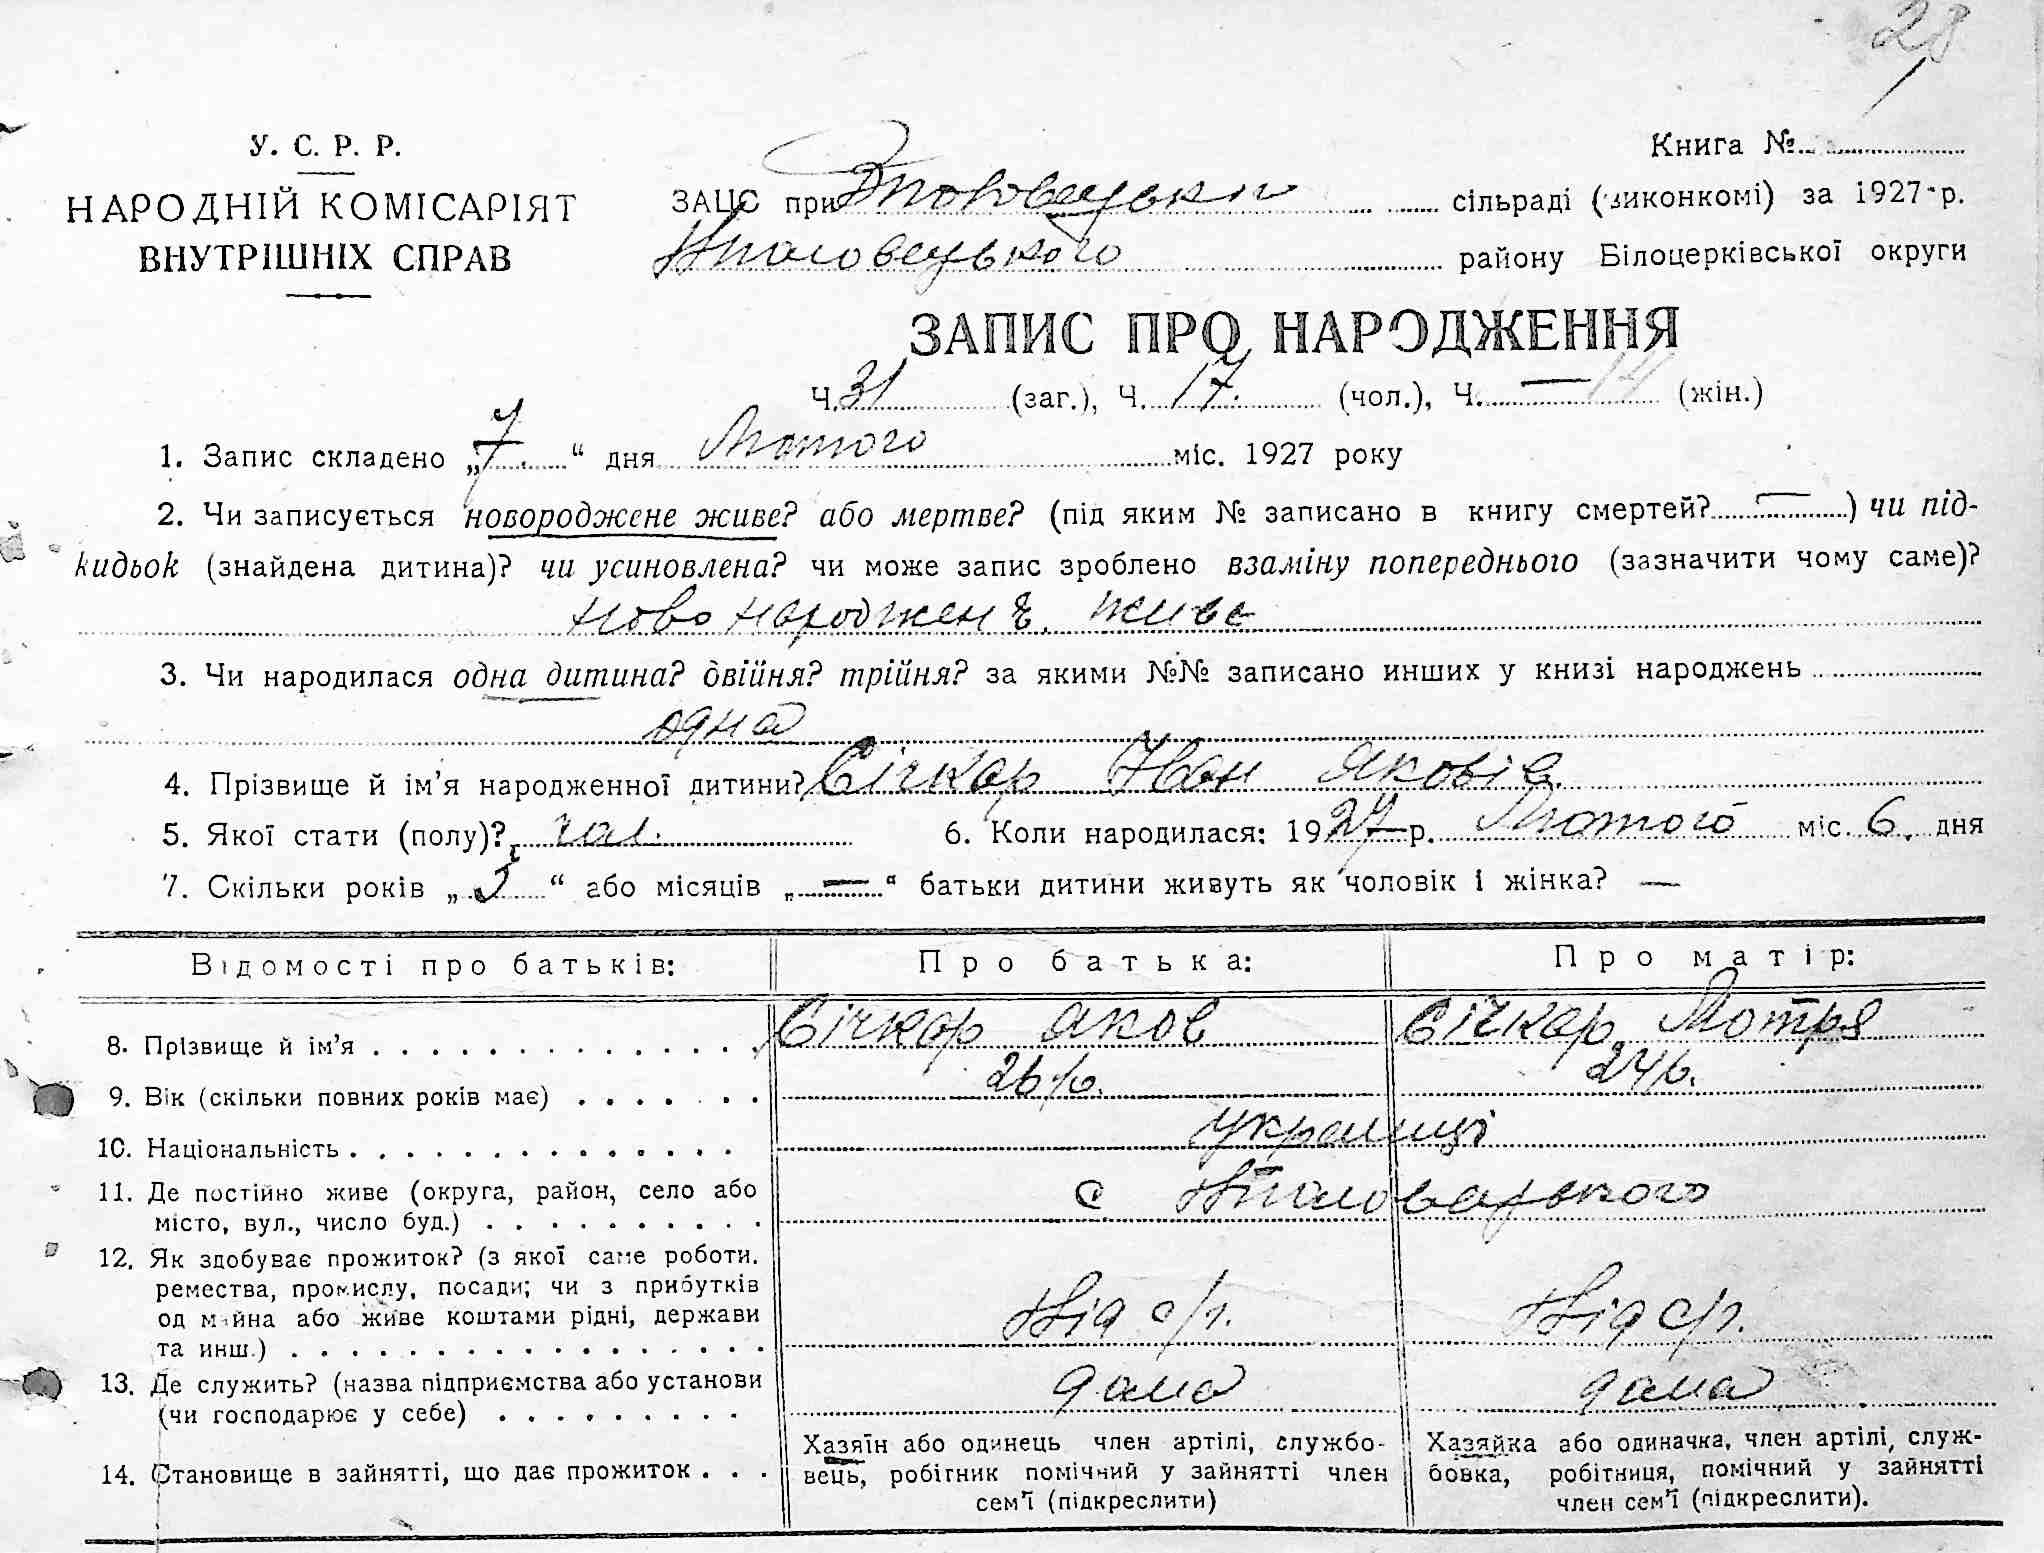 28
У. С. Р. Р.
НАРОДНІЙ КОМІСАРІЯТ
ВНУТРІШНІХ СПРАВ
Книга №
ЗАЦС при сільраді (виконкомі) за 1927 р.
району Білоцерківської округи
ЗАПИС ПРО НАРОДЖЕННЯ
Ч. 31 (заг.), Ч. 17. (чол.), Ч. — 14 (жін.)
1. Запис складено „7.“ дня Лютого міс. 1927 року
2. Чи записується новороджене живе? або мертве? (під яким № записано в книгу смертей? —) чи під-
кидьок (знайдена дитина)? чи усиновлена? чи може запис зроблено взаміну попереднього (зазначити чому саме)?
живе
3. Чи народилася одна дитина? двійня? трійня? за якими №№ записано инших у книзі народжень
одна
4. Прізвище й ім'я народженної дитини? Січкар Іван Яковів
5. Якої стати (полу)? чол. 6. Коли народилася: 1927 р. Лютого міс. 6. дня
7. Скільки років „3“ або місяців „—“ батьки дитини живуть як чоловік і жінка? —
Відомості про батьків: Про батька: Про матір:
8. Прізвище й ім'я . . . . . . . . . . . . . . Січкар Яков Січкар Мотря
9. Вік (скільки повних років має) . . . . . . . 26 р. 24 р.
10. Національність . . . . . . . . . . . . . . українці
11. Де постійно живе (округа, район, село або
місто, вул., число буд.) . . . . . . . . . . с
12. Як здобуває прожиток? (з якої саме роботи,
ремества, промислу, посади; чи з прибутків
од майна або живе коштами рідні, держави
та инш.) . . . . . . . . . . . . . . . . . Від с/г. Від с/г.
13. Де служить? (назва підприємства або установи
(чи господарює у себе) . . . . . . . . . дома дома
14. Становище в зайнятті, що дає прожиток . . .
Хазяїн або одинець член артілі, службо-
вець, робігник помічний у зайнятті член
сем'ї (підкреслити)
Хазяйка або одиначка, член артілі, служ-
бовка, робітниця, помічний у зайнятті
член сем'ї (підкреслити).